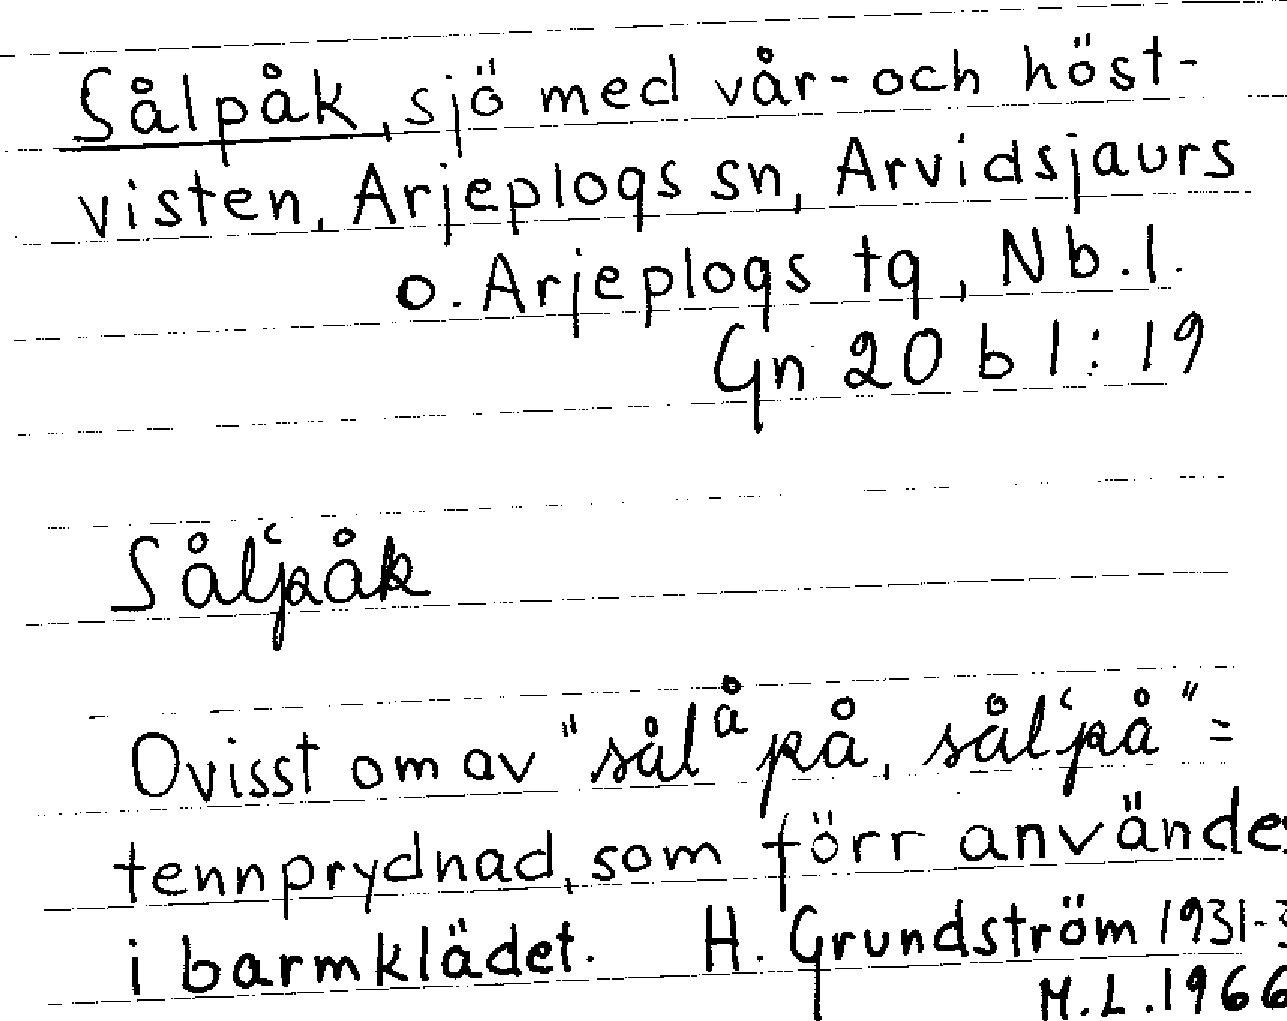 Sålpåk, sjö med vår- och höst-
visten, Arjeplogs sn, Arvidsjaurs
o. Arjeplogs tg, Nb.l.
Gn 20 b 1:19
Sål‘påk
Ovisst om av "sålåpå, sål‘på" =
tennprydnad, som förr använde
i barmklädet. H. Grundström 1931-3
M.L. 1966